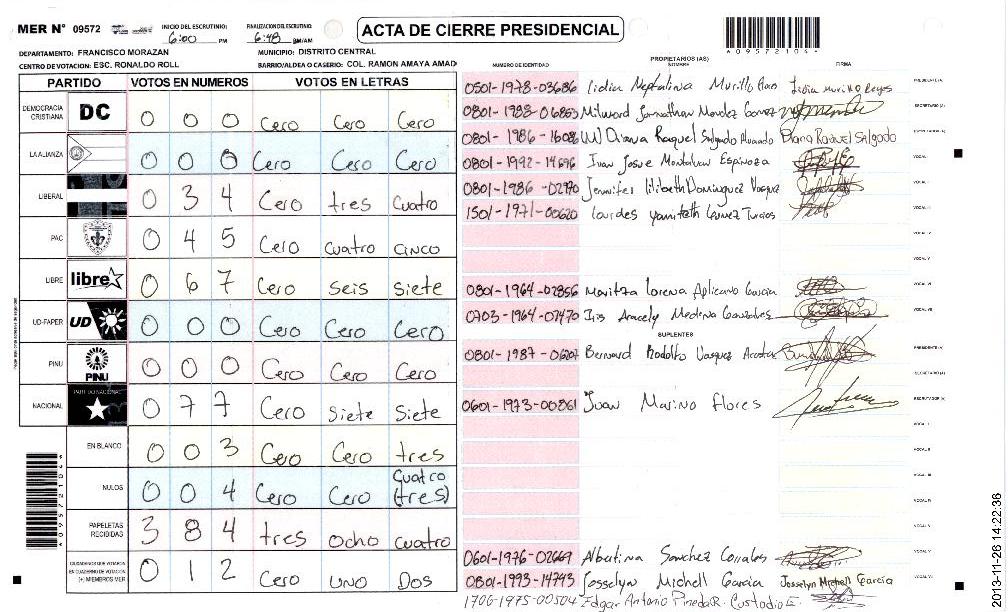 MER N° 09572 INICIO DEL ESCRUTINIO: 6:00 PM FINALIZACION DEL ESCRUTINIO: 6:48 PM/AM
ACTA DE CIERRE PRESIDENCIAL
09572104
DEPARTAMENTO: FRANCISCO MORAZAN MUNICIPIO: DISTRITO CENTRAL
CENTRO DE VOTACION: ESC. RONALDO ROLL BARRIO/ALDEA O CASERIO: COL. RAMON AMAYA AMAD
PARTIDO VOTOS EN NUMEROS VOTOS EN LETRAS
DEMOCRACIA CRISTIANA DC 0 0 0 Cero Cero Cero
LA ALIANZA 0 0 0 Cero Cero Cero
LIBERAL 0 3 4 Cero tres Cuatro
PAC 0 4 5 Cero cuatro cinco
LIBRE libre 0 6 7 Cero seis siete
UD-FAPER UD 0 0 0 Cero Cero Cero
PINU PINU 0 0 0 Cero Cero Cero
NACIONAL PARTIDO NACIONAL 0 7 7 Cero siete siete
EN BLANCO 0 0 3 Cero Cero tres
NULOS 0 0 4 Cero Cero Cuatro (tres)
PAPELETAS RECIBIDAS 3 8 4 tres ocho cuatro
CIUDADANOS QUE VOTARON EN CUADERNO DE VOTACION (+) MIEMBROS MER 0 1 2 Cero UNO Dos
PROPRIETARIOS (AS)
NUMERO DE IDENTIDAD NOMBRE FIRMA
0501-1978-03686 Lidia Neptalina Murillo Lidia Murillo Reyes PRESIDENTE (A)
0801-1988-06853 Milward Jonnathan SECRETARIO (A)
0801-1986- Diana Raquel Salgado Diana Raquel Salgado
0801-1992-14696 Juan Josue Montalvan Espinoza VOCAL I
0801-1986-02970 Jennifer Lilibeth Dominguez Vasquez
1501-1971-00620 Lourdes Yamileth Gomez Turcios
VOCAL IV
VOCAL V
0801-1964-02856 Maritza Lorena Aplicano Garcia VOCAL VI
0703-1964-02470 Iris Aracely Medina Gonzales VOCAL VII
SUPLENTES
0801-1987-06207 Bernard Rodolfo Vasquez Acosta PRESIDENTE (A)
SECRETARIO (A)
0601-1973-00861 Juan Marino Flores ESCRUTADOR (A)
VOCAL I
VOCAL II
VOCAL III
VOCAL IV
0601-1976-02669 Albertina Sanchez Corrales
0801-1993-14743 Josselyn Michell Garcia Josselyn Michell Garcia
1706-1975-00504 Edgar Antonio Pineda R. Custodio E.
09572104
2013-11-26 14:22:36